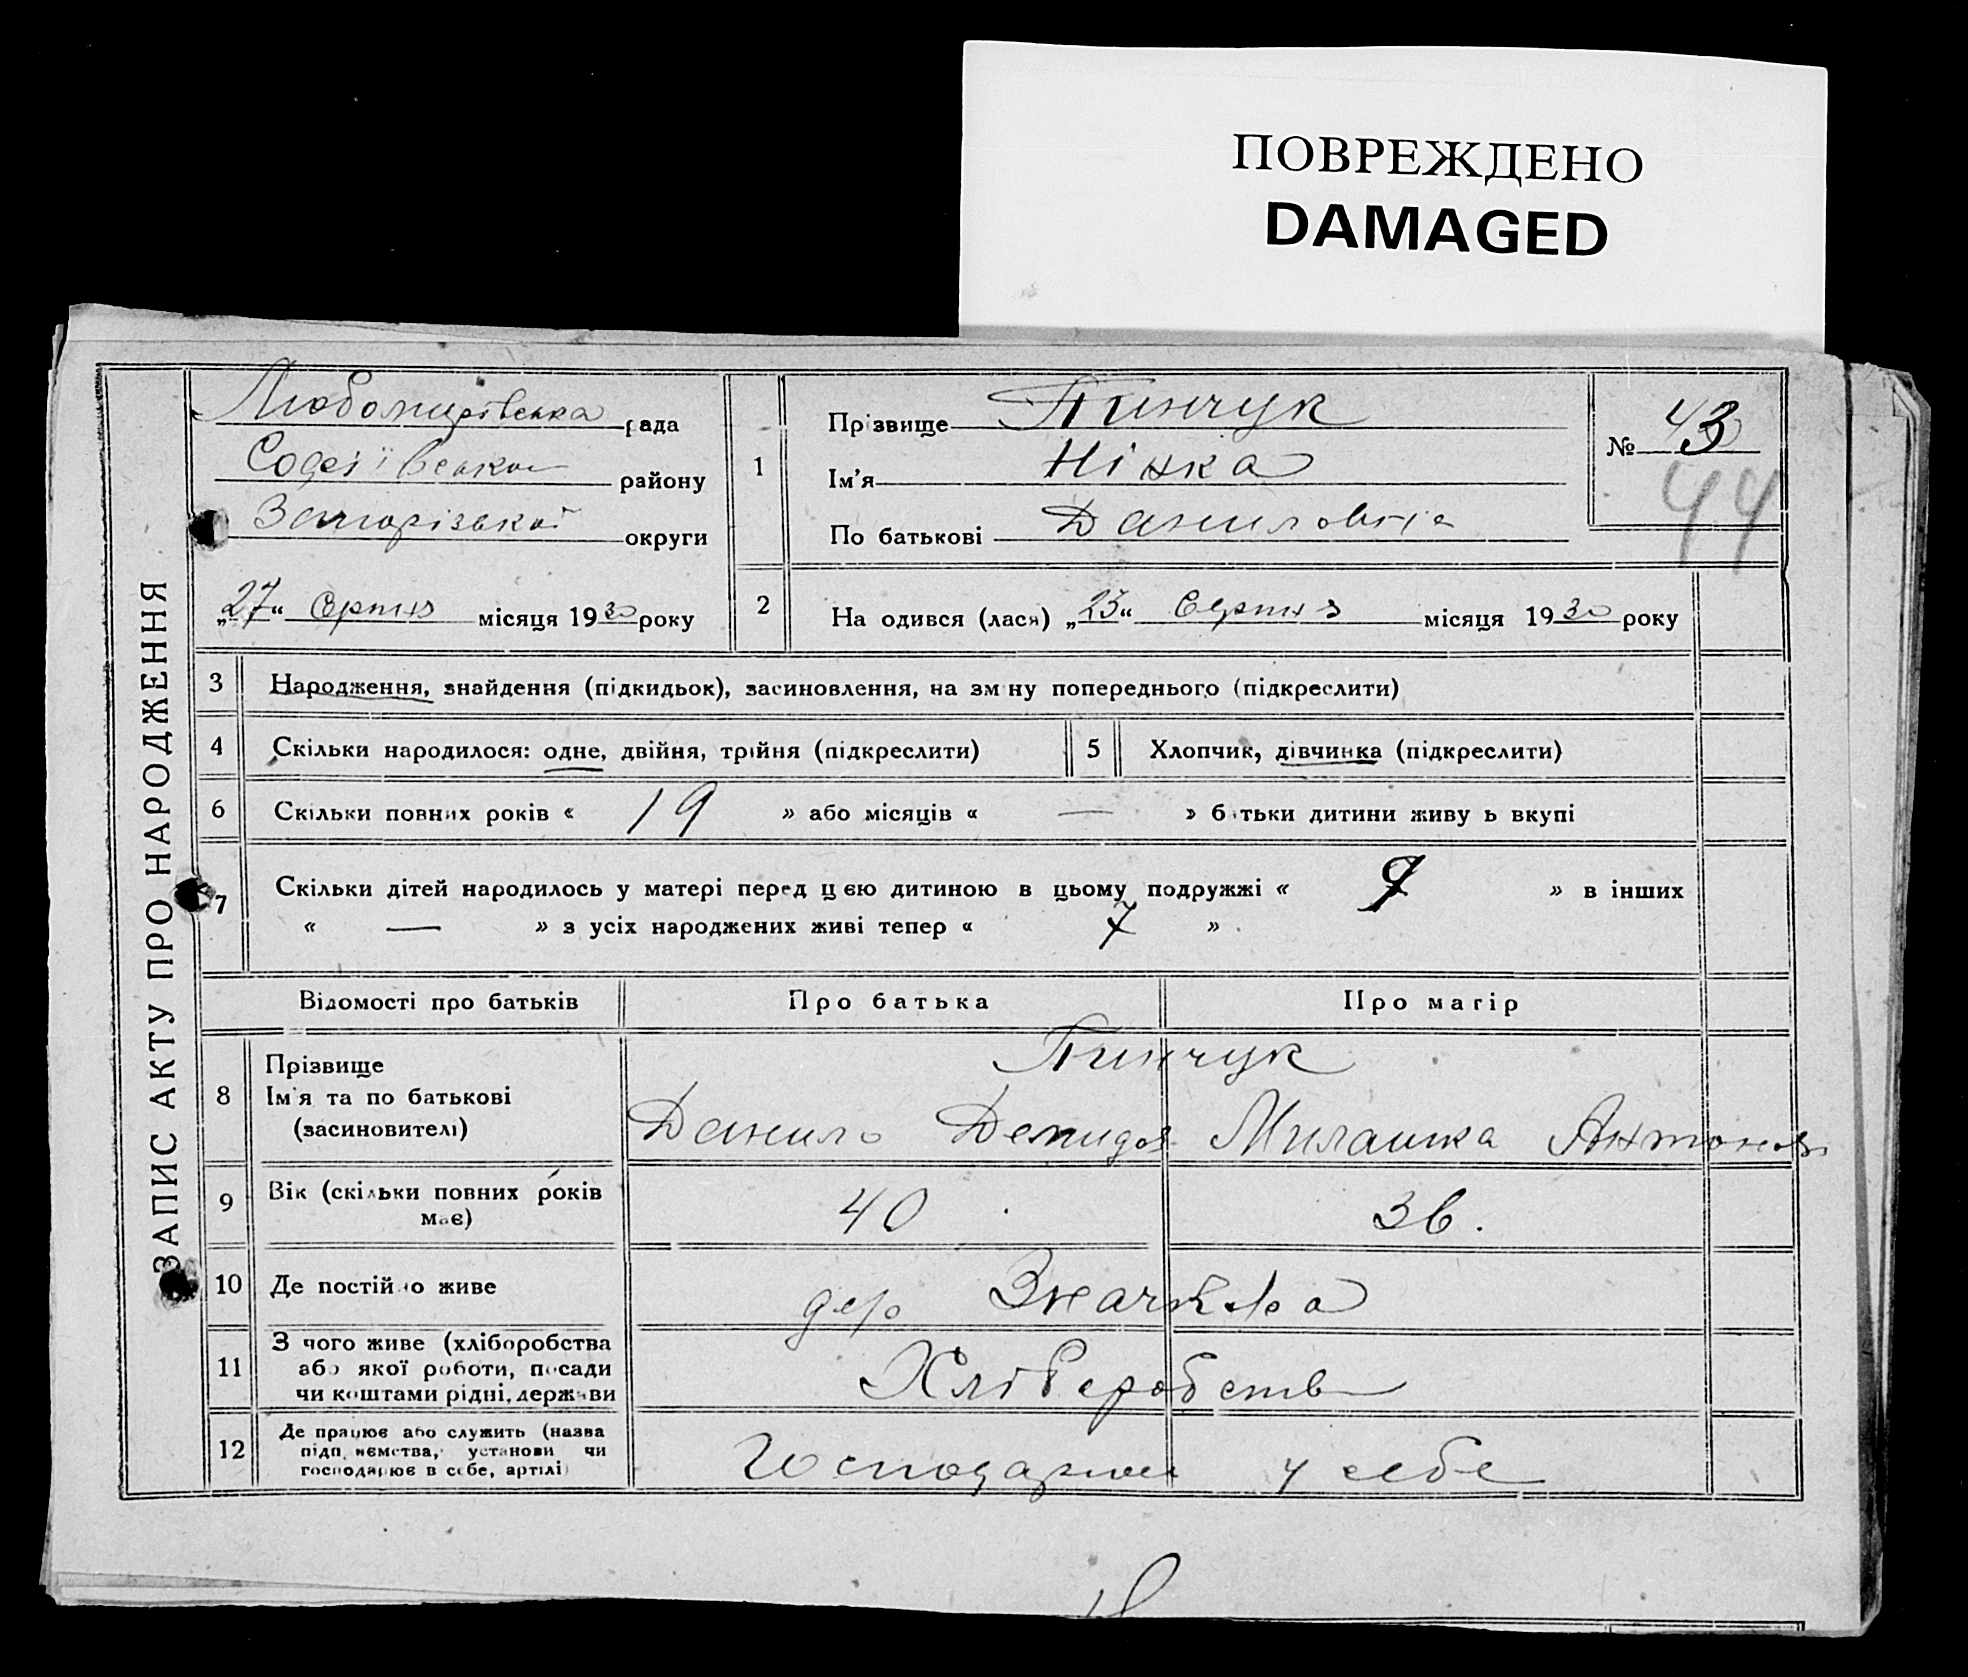 ПОВРЕЖДЕНО
DAMAGED
ЗАПИС АКТУ ПРО НАРОДЖЕННЯ
Любомирівська рада
Софіївсько району
Запорізької округи
„27“ Серпня місяця 1930 року
1
Прізвище Пинчук
Ім'я Нінка
По батькові Даниловна
№ 43
44
2 На одився (лася) „23“ Серпня місяця 1930 року
3 Народження, знайдення (підкидьок), засиновлення, на зм ну попереднього (підкреслити)
4 Скільки народилося: одне, двійня, трійня (підкреслити) 5 Хлопчик, дівчинка (підкреслити)
6 Скільки повних років « 19 » або місяців « — » б тьки дитини живу ь вкупі
7 Скільки дітей народилось у матері перед ц єю дитиною в цьому подружжі « » в інших
« — » з усіх народжених живі тепер « 7 »
Відомості про батьків Про батька Про матір
8 Прізвище Пинчук
Ім'я та по батькові Данило Демидов Милашка Антонов
(засиновителі)
9 Вік (скільки повних років має) 40 36.
10 Де постій о живе дер
11 З чого живе (хліборобства
або якої роботи, посади
чи коштами рідні, держави Хлібороб
12 Де працює або служить (назва
підп иємства, установи чи
господарює в себе, артілі) Господарює у себе